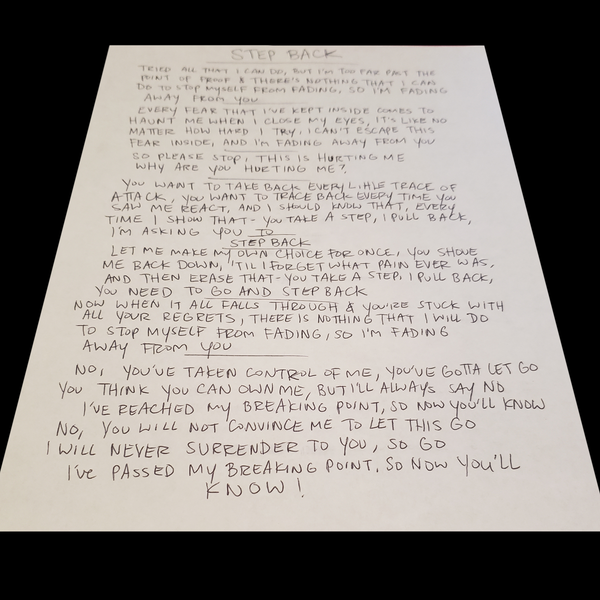 STEP BACK
TRIED ALL THAT I CAN DO, BUT I'M TOO FAR PAST THE
POINT OF PROOF & THERE'S NOTHING THAT I CAN
DO TO STOP MYSELF FROM FADING, SO I'M FADING
AWAY FROM YOU
EVERY FEAR THAT I'VE KEPT INSIDE COMES TO
HAUNT ME WHEN I CLOSE MY EYES, IT'S LIKE NO
MATTER HOW HARD I TRY, I CAN'T ESCAPE THIS
FEAR INSIDE, AND I'M FADING AWAY FROM YOU
SO PLEASE STOP, THIS IS HURTING ME
WHY ARE YOU HURTING ME?
YOU WANT TO TAKE BACK EVERY LITTLE TRACE OF
ATTACK, YOU WANT TO TRACE BACK EVERY TIME YOU
SAW ME REACT, AND I SHOULD KNOW THAT, EVERY
TIME I SHOW THAT - YOU TAKE A STEP, I PULL BACK,
I'M ASKING YOU TO
STEP BACK
LET ME MAKE MY OWN CHOICE FOR ONCE, YOU SHOVE
ME BACK DOWN, 'TIL I FORGET WHAT PAIN EVER WAS,
AND THEN ERASE THAT - YOU TAKE A STEP, I PULL BACK,
YOU NEED TO GO AND STEP BACK
NOW WHEN IT ALL FALLS THROUGH & YOU'RE STUCK WITH
ALL YOUR REGRETS, THERE IS NOTHING THAT I WILL DO
TO STOP MYSELF FROM FADING, SO I'M FADING
AWAY FROM YOU
NO, YOU'VE TAKEN CONTROL OF ME, YOU'VE GOTTA LET GO
YOU THINK YOU CAN OWN ME, BUT I'LL ALWAYS SAY NO
I'VE REACHED MY BREAKING POINT, SO NOW YOU'LL KNOW
NO, YOU WILL NOT CONVINCE ME TO LET THIS GO
I WILL NEVER SURRENDER TO YOU, SO GO
I'VE PASSED MY BREAKING POINT, SO NOW YOU'LL
KNOW!